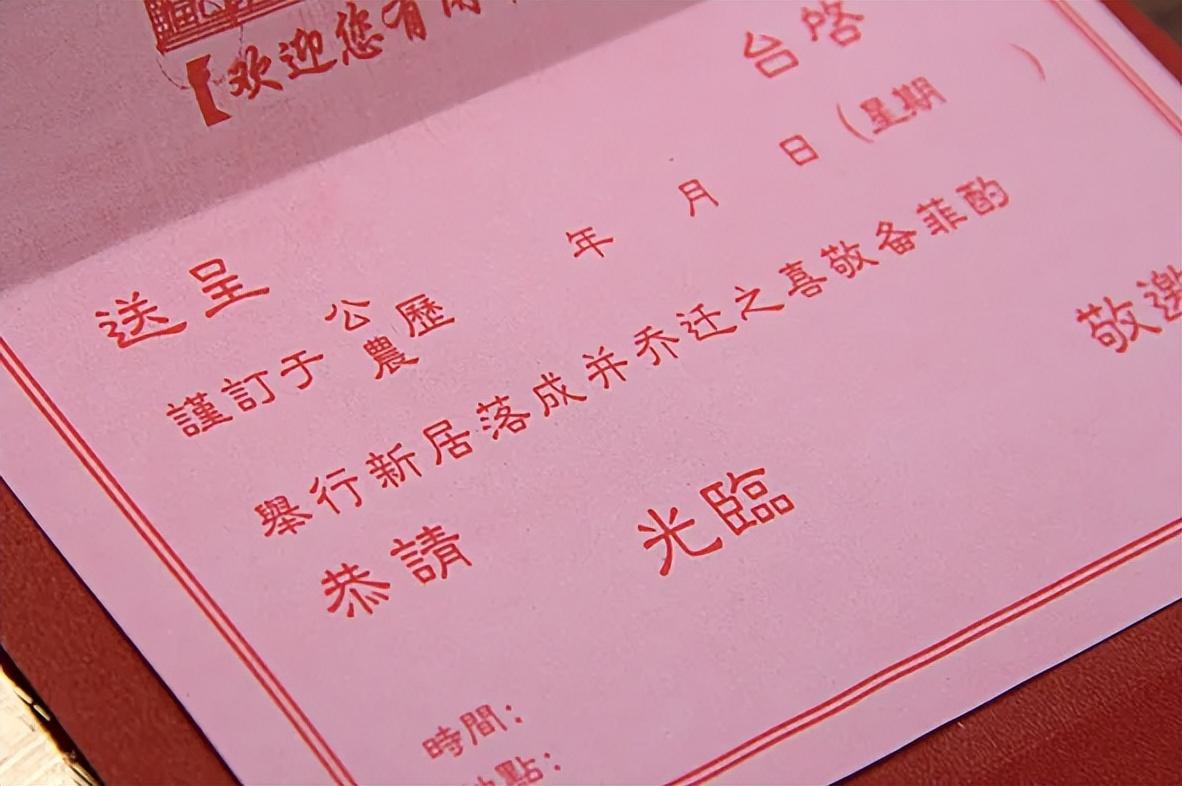 【欢迎您有
送呈 台啓
謹訂于 公農歷 年 月 日(星期 )
舉行新居落成并乔迁之喜敬备菲酌
恭請 光臨
敬邀
時間:
地點: